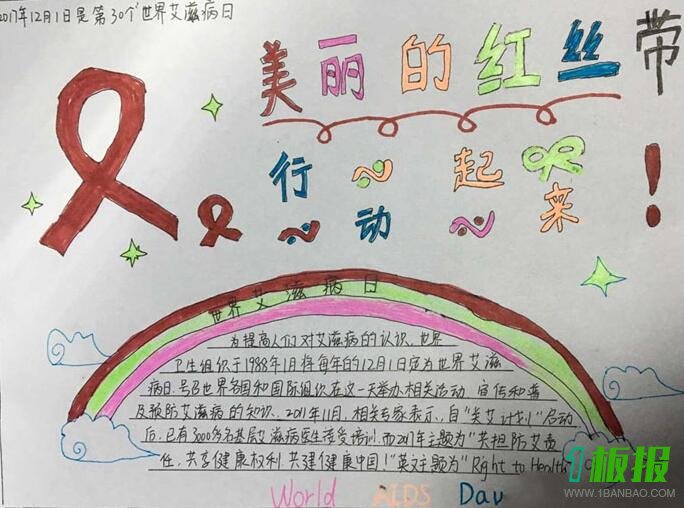 2017年12月1日是第30个世界艾滋病日
美丽的红丝带
行~起
~动~来!
世界艾滋病日
为提高人们对艾滋病的认识，世界
卫生组织于1988年1月将每年的12月1日定为世界艾滋
病日，号召世界各国和国际组织在这一天举办相关活动，宣传和普
及预防艾滋病的知识。2017年11月，相关专家表示，自"关艾计划"启动
后，已有3000多名基层艾滋病医生接受培训，而2017年主题为"共担防艾责
任，共享健康权利，共建健康中国!"英文主题为"Right to Health"
World AIDS Day
1板报
WWW.1BANBAO.COM